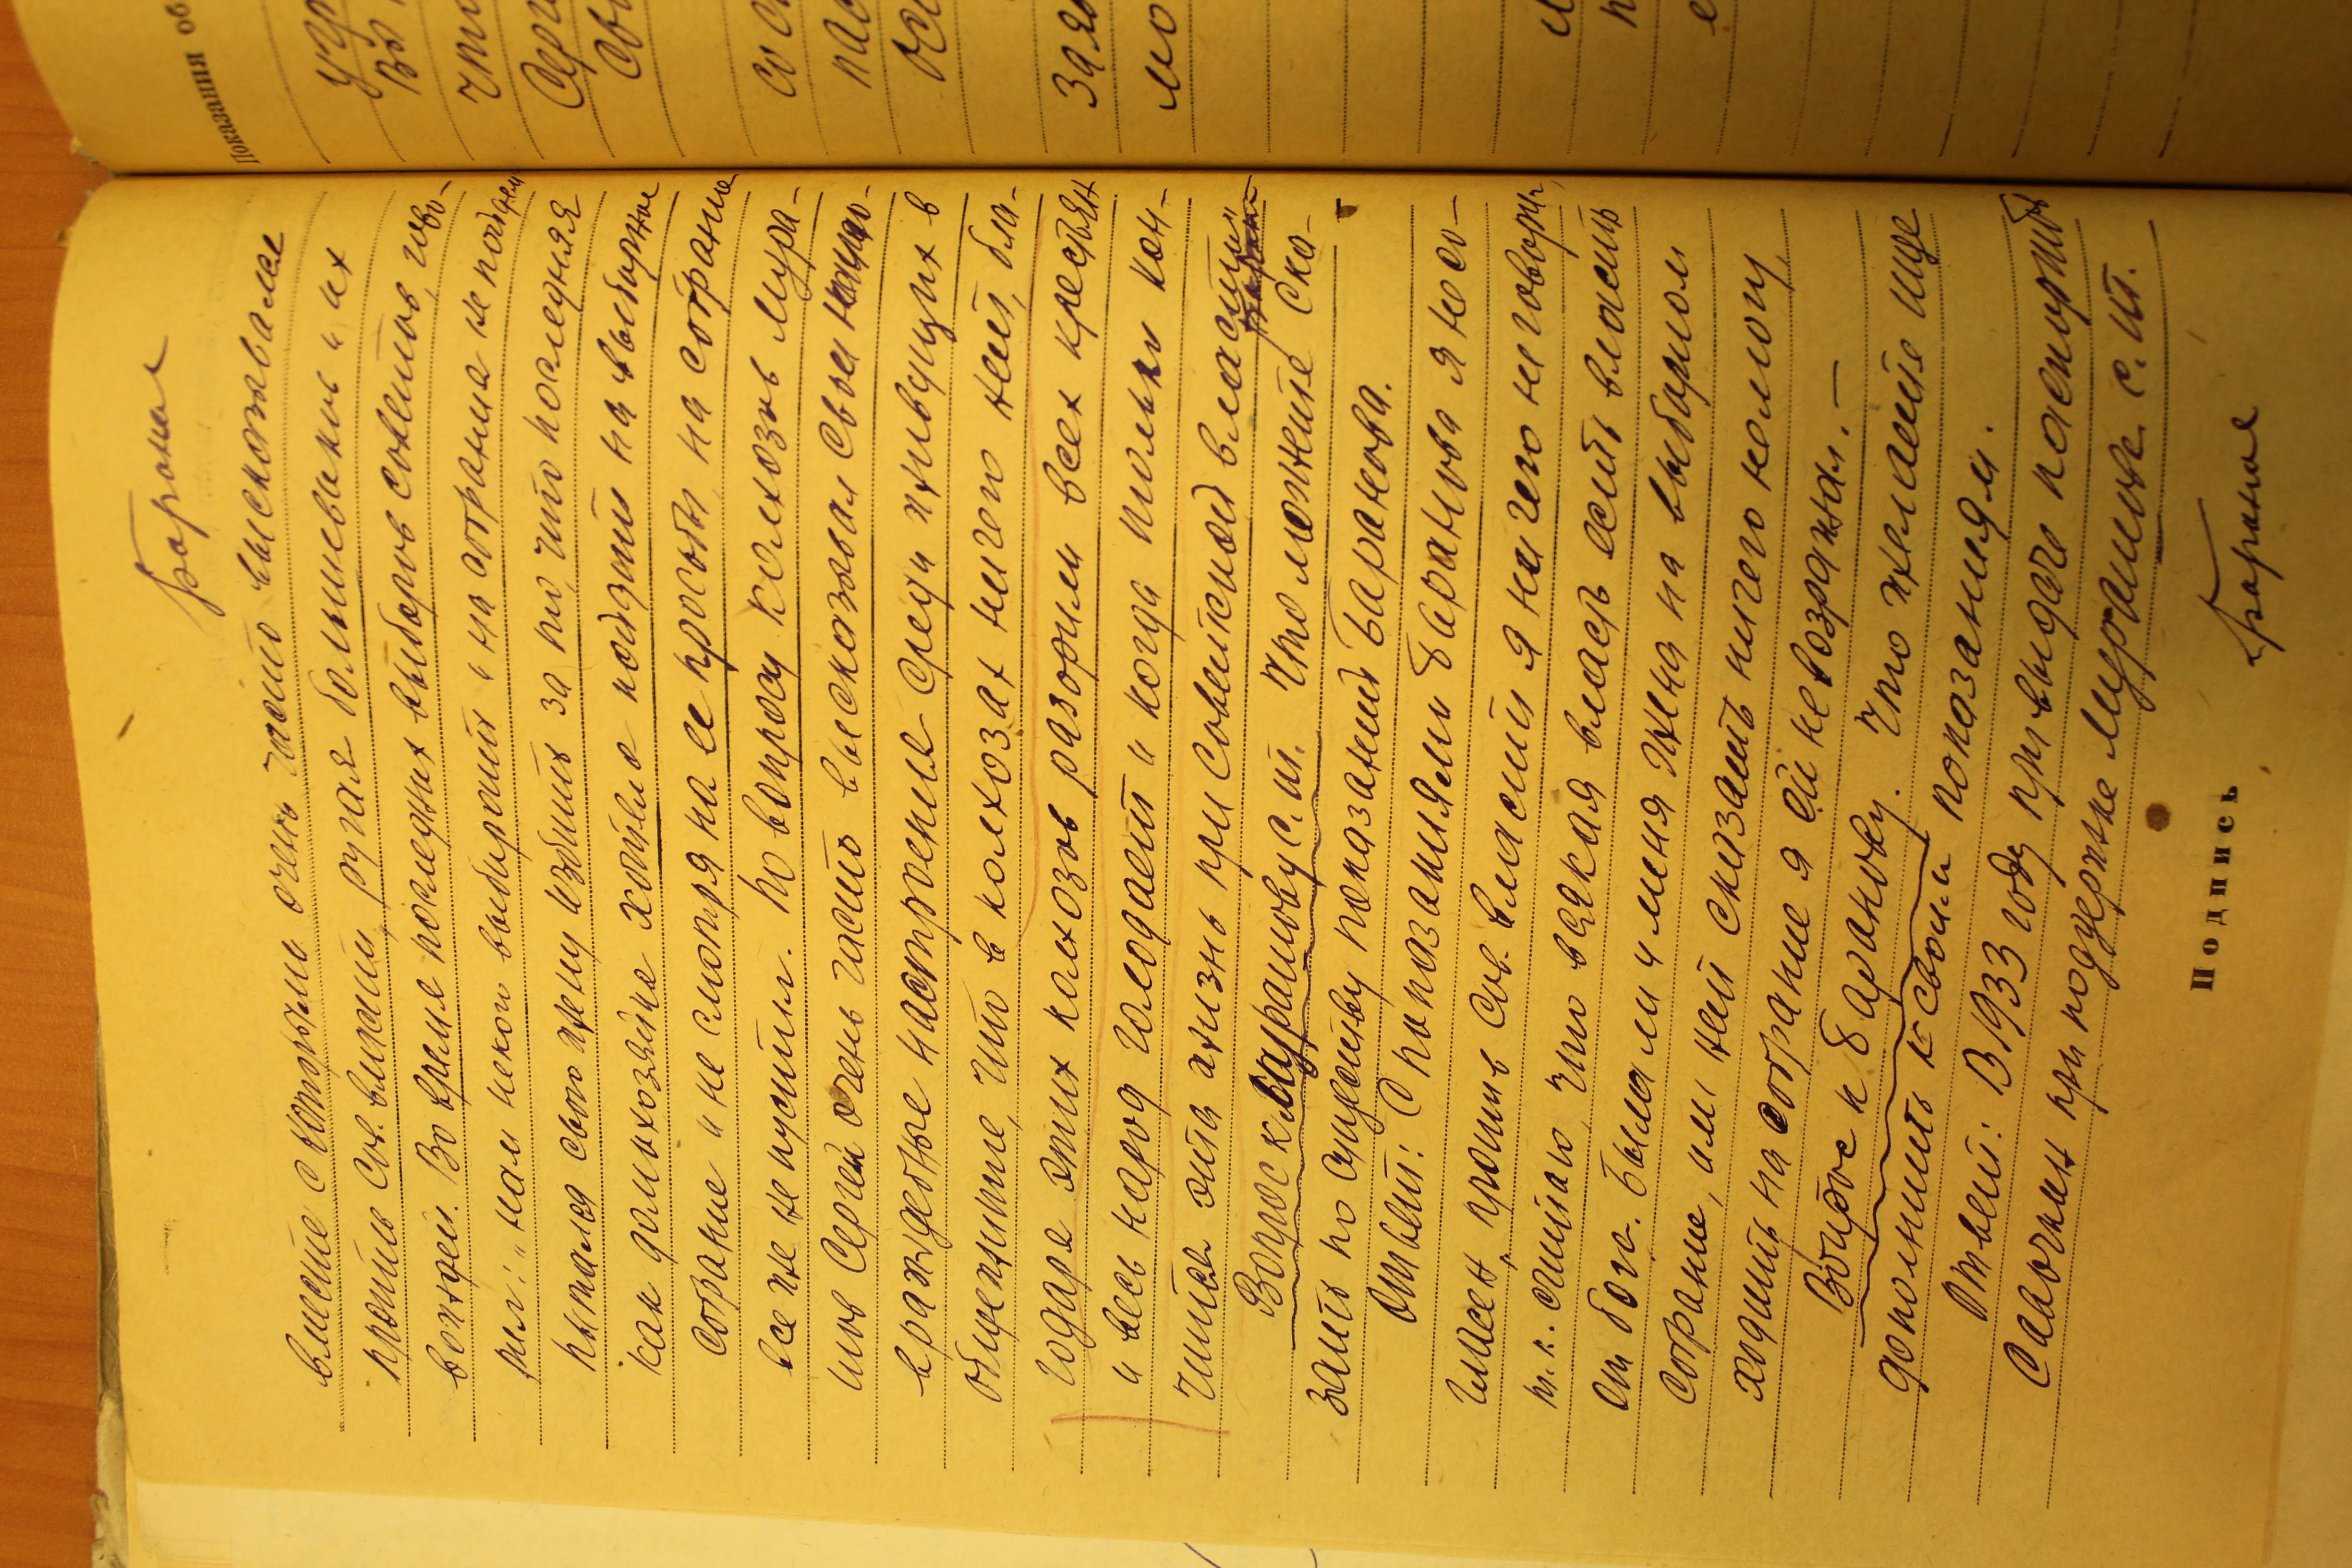 Баранов
вместе с которыми очень часто высказывался
против Сов. власти, ругая большевиков и их
вождей. Во время последних выборов советов, гово-
рил: "нам некого выбирать и на собрания не пойдем
пытался свою жену избить за то, что последняя
как домохозяйка хотела пойдти на выборное
собрание и не смотря на ее просьбы на собрание
все же не пустил. По вопросу колхозов Мура-
шов Сергей очень часто высказывал свои
враждебные настроения среди живущих в
общежитие, что в колхозах ничего нет, бла-
годаря этих колхозов разорили всех крестьян
и весь народ голодает и когда только кон-
чится эта жизнь при Советской власти"
Вопрос к Мурашову С.И. Что можете ска-
зать по существу показаний Баранова.
Ответ: С показаниями Баранова я не со-
гласен, против Сов. власти я ничего не говорил,
т.к. считаю, что всякая власть есть власть
от бога. Была ли у меня жена на выборном
собрание, или нет сказать ничего не могу,
ходить на собрание я ей не возражал. —
Вопрос к Баранову. Что желаете еще
дополнить к своим показаниям.
Ответ: В 1933 году при выдаче
при поддержке Мурашова С.И.
Подпись
Баранов
Показания об
Серг